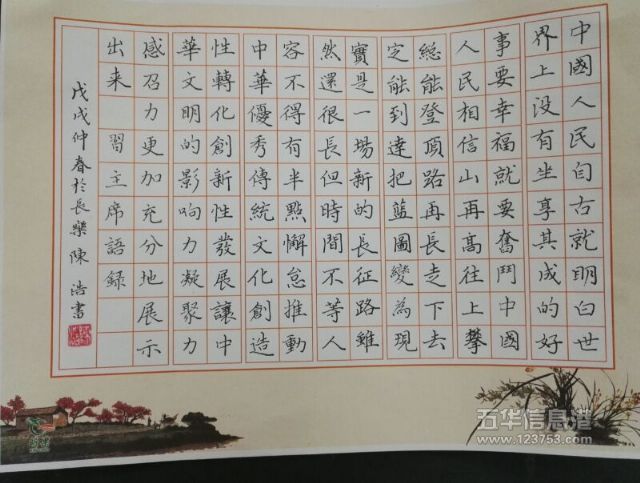 中國人民自古就明白世
界上没有坐享其成的好
事要幸福就要奮鬥中國
人民相信山再高往上攀
総能登頂路再長走下去
定能到達把藍圖變為現
實是一場新的長征路雖
然還很長但時間不等人
容不得有半點懈怠推動
中華優秀傳統文化創造
性轉化創新性發展讓中
華文明的影响力凝聚力
感召力更加充分地展示
出来 習主席語録
戊戌仲春於長樂陳浩書
五华信息港
www.123753.com